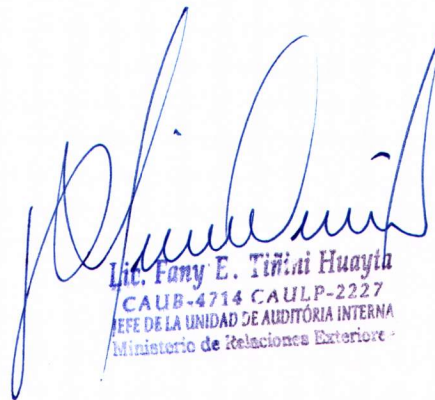 Lic. Fany E. Tiñini Huayta
CAUB-4714 CAULP-2227
JEFE DE LA UNIDAD DE AUDITORIA INTERNA
Ministerio de Relaciones Exteriores